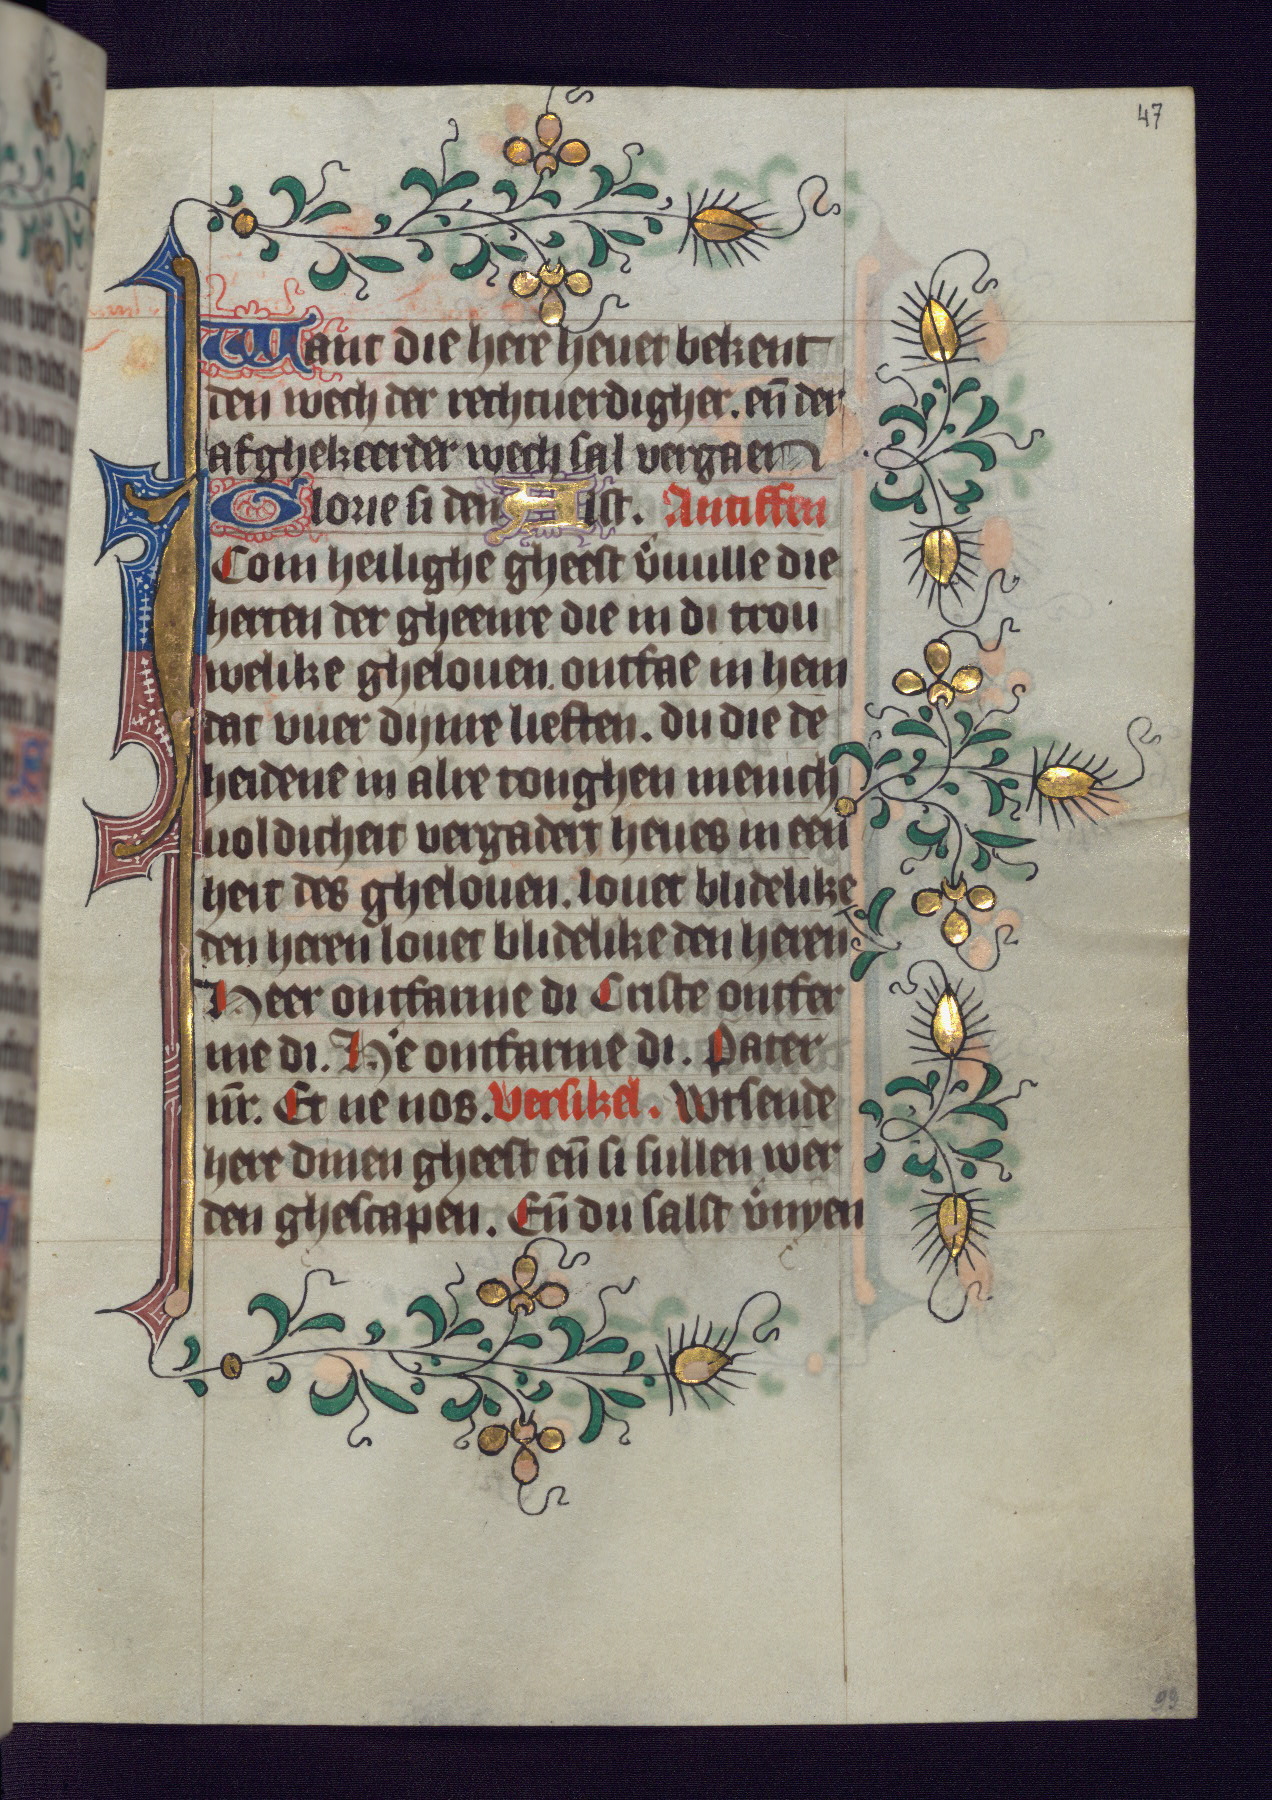 47
Want die here heuet bekent
den wech der rechtuerdigher. en̄ der
afghekeerder wech sal vergaen
Glorie si den A ist. Antiffen
Com heilighe gheest v̉uulle die
herten der gheenre die in di trou
welike ghelouen. ontfae in hem
dat vuer dijnre lieften. du die de
heidene in alre tonghen menich
uoldicheit vergadert heues in een
heit des ghelouen. louet blidelike
den heren louet blidelike den heren
Heer ontfarme di Criste ontfer
me di. He ontfarme di. Pater
nr̄. Et ne nos. Versikel. Wtsende
here dinen gheest en̄ si sullen wer
den ghescapen. En̄ du salst v̉nyen
99